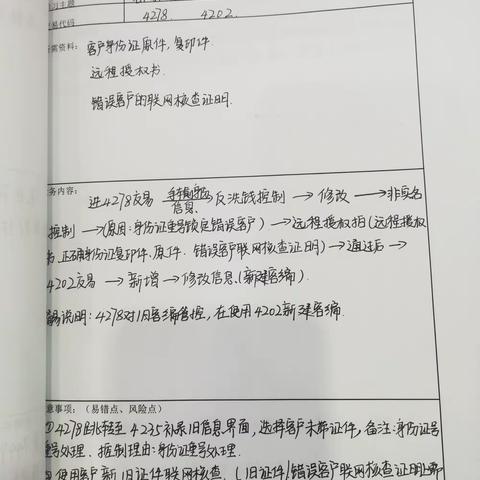 习主题
易代码 4278. 4202.
所需资料: 客户身份证原件,复印件.
远程授权书
错误客户的联网核查证明.
务内容: 进4278交易 信息 反洗钱控制 → 修改 → 非实名
控制 → (原因:身份证重号锁定错误客户) → 远程授权拍(远程授权
书、正确身份证复印件、原件、错误客户联网核查证明) → 通过后 →
4202交易 → 新增 → 修改信息.(新建客编).
说明: 4278对旧客编管控,在使用4202新建客编.
意事项: (易错点、风险点)
①4278跳转至4235补录旧信息界面,选择客户未带证件,备注:身份证号
重号处理、控制理由:身份证重号处理.
使用客户新旧证件联网核查、(旧证件/错误客户联网核查证明